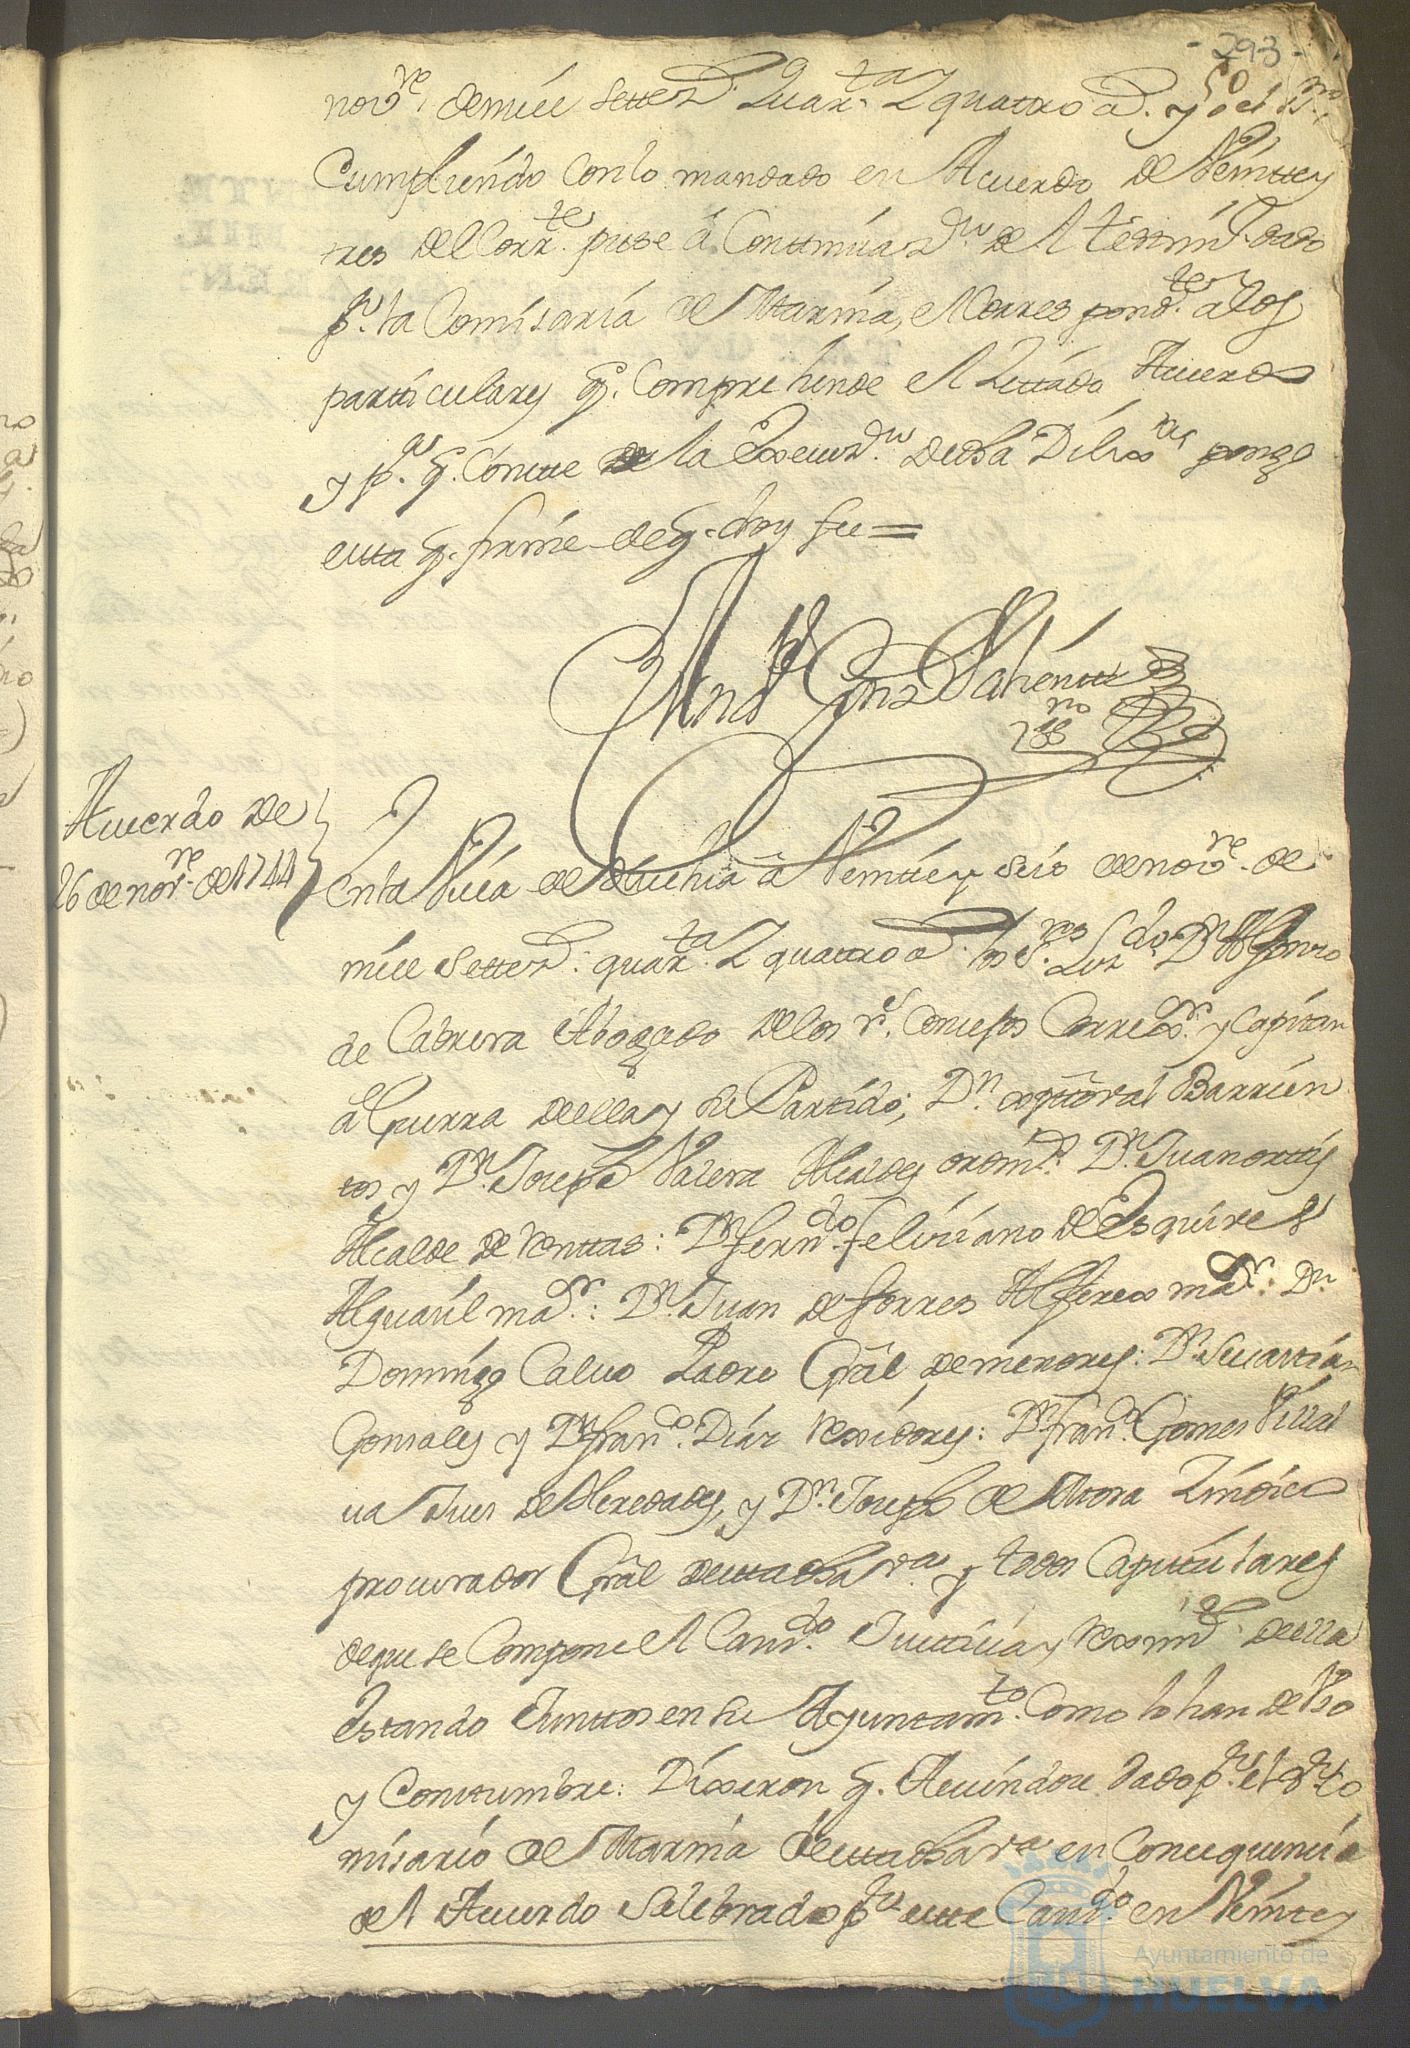 -293-
novre. de mill settez. quarta. y quattro a. yo el ssno.
Cumpliendo con lo mandado en Acuerdo de Veintte y
tres del Corrte. puse â Conttinuazn. de el dado
pr. la Comisaría de Marina, el Correspondte. â los
particulares q. Comprehende el Zittado Acuerdo
y pa. q. Conste de la Execuzn. de dha Dilixas pongo
esta q. firmé de q. doy fee =
Gonz Vahêntte
ssno
Acuerdo de
26 de novre. de 1744
En la Villa de â Veintte y seis de novre. de
mill settez: quarta. y quattro a. los Sres. Lizdo. Dn. Alfonzo
de Cabrera Abogado de los rs. Consejos Correxor. y Capitan
â Guerra de ella y su Partido; Dn. Barrien
tos y Dn. Joseph Valera Alcaldes ordins. Dn. Juan orttis
Alcalde de renttas: Dn. Ferndo. Feliciano de Esquivel
Alguasil mar.: Dn. Juan de Torres Alferes mar. Dn.
Domingo Calvo Padre Gral de menores: Dn. Sevastian
Gonsales y Dn. Frando. Diaz rexidores: Dn. Frando. Gomes Villal
va Jues de Heredades, y Dn. Joseph de Mora Zindico
procurador Gral de esta dha va. y todos Capitulares
de que se Compone el Cavdo. Justticia y reximto. de ella
Estando Junttos en su Ayuntamto. Como lo han de Vso
y Consttumbre: Dixeron q. haviendose dado pr. el Sr. Co
misario de Marina de esta dha va en Consequencia
del Acuerdo Selebrado pr. este Cavdo. en Veintte y
Ayuntamiento de
HUELVA